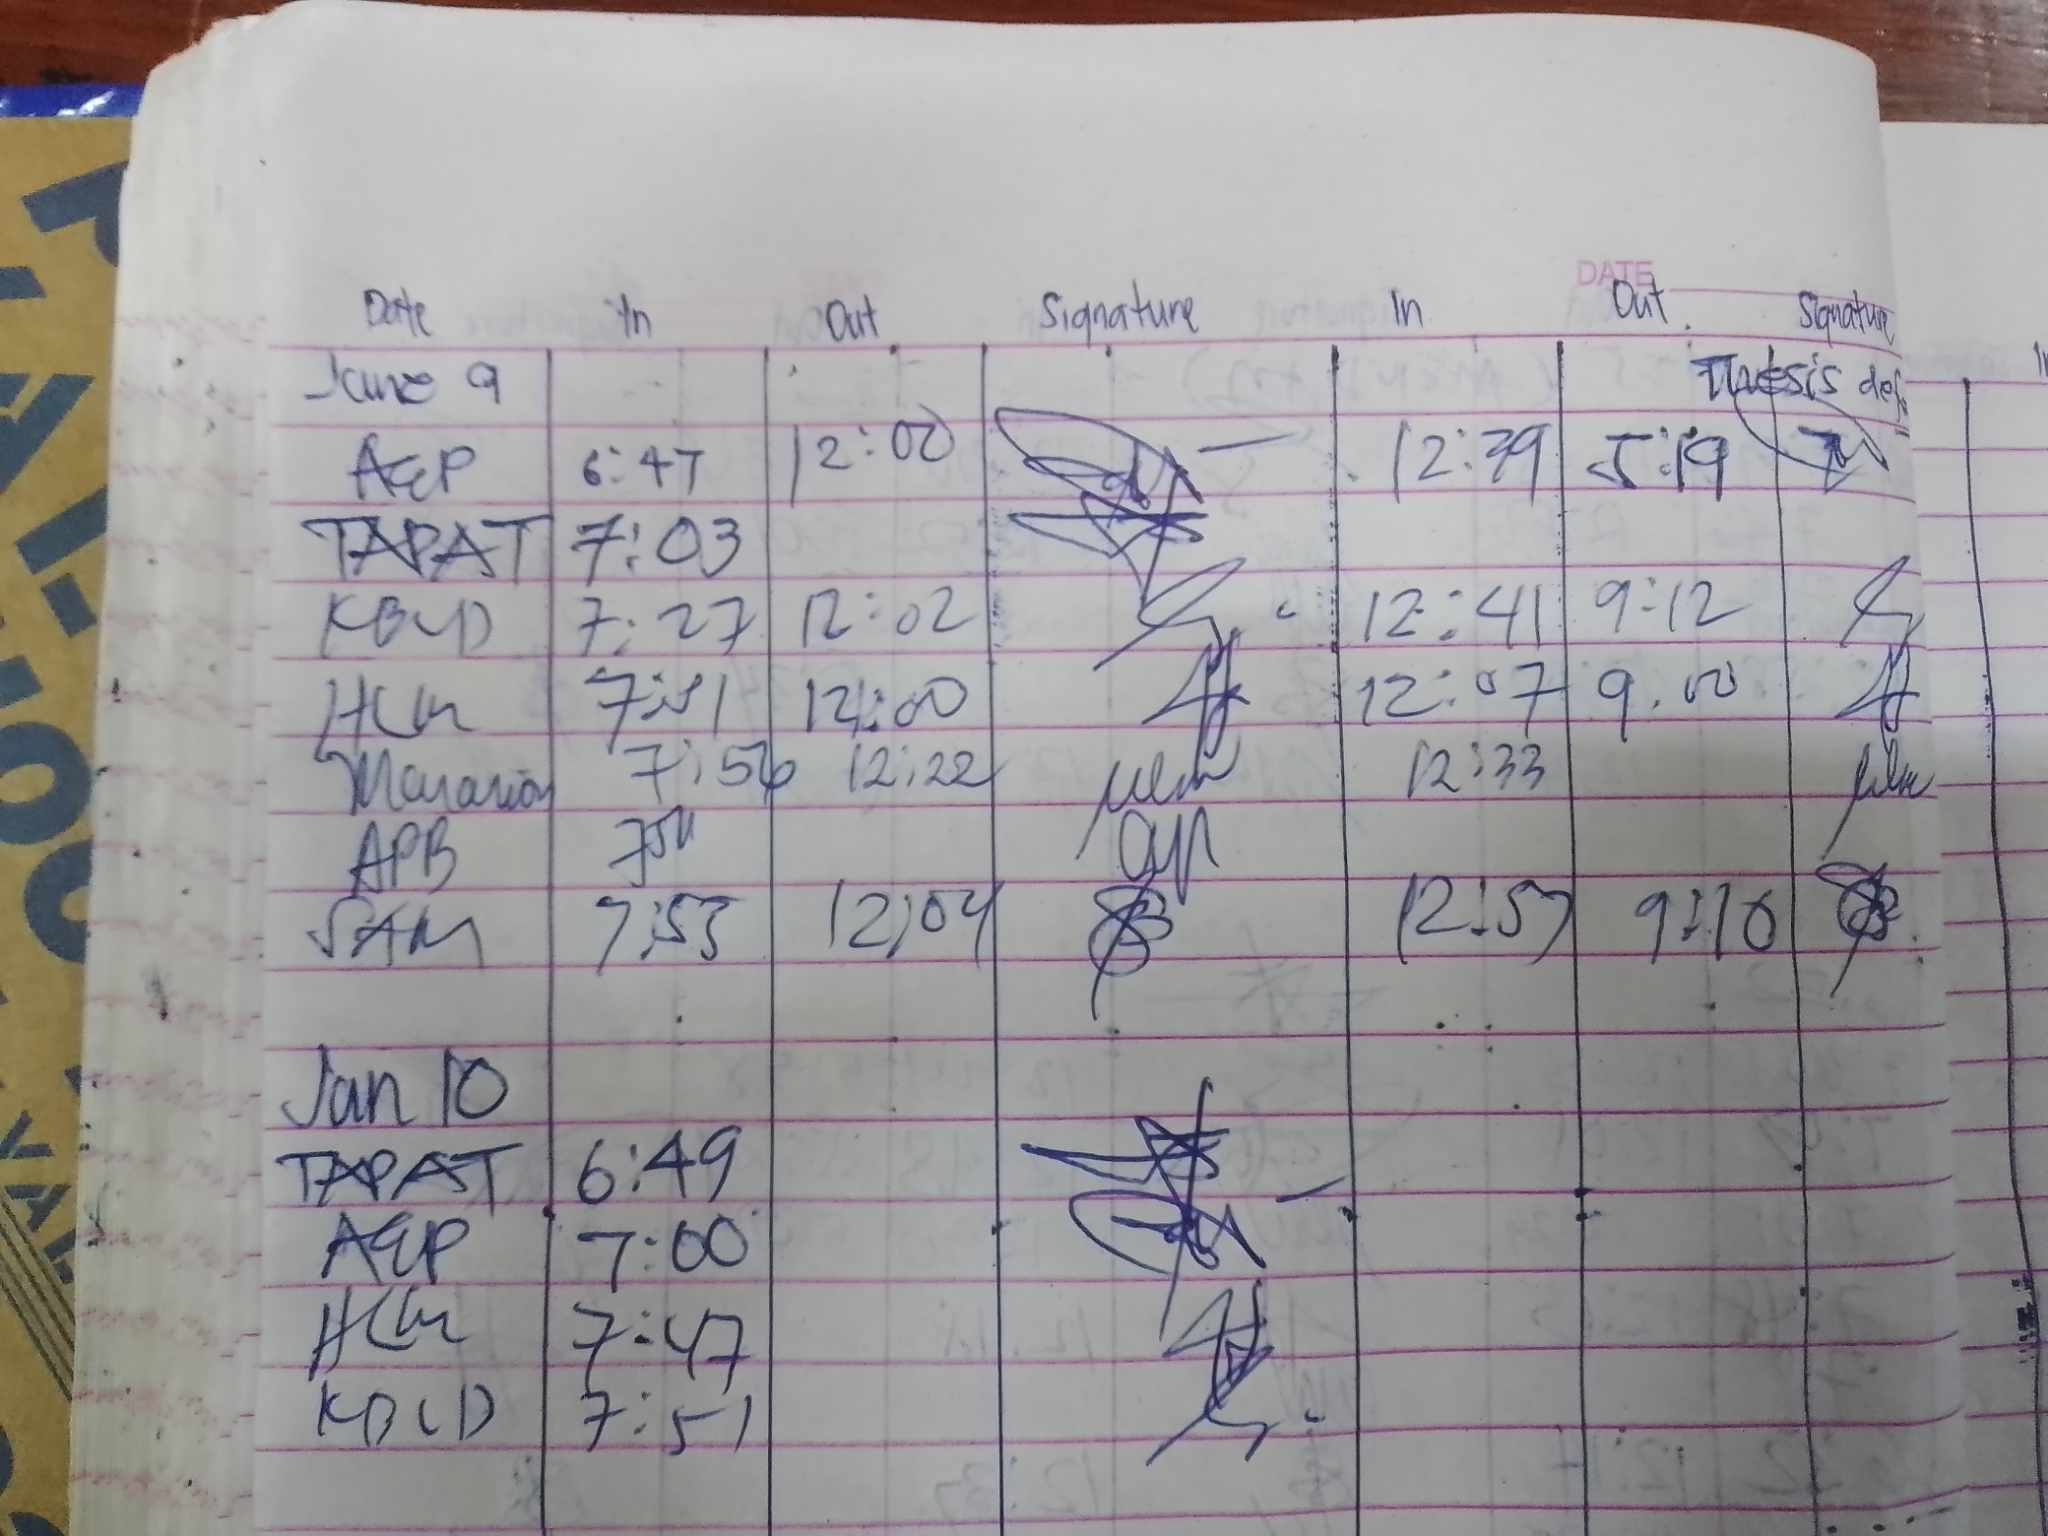 DATE
Date In Out Signature In Out Signature
June 9 Thesis def
AEP 6:47 12:00 12:39 5:19
TAPAT 7:03
KBCD 7:27 12:02 12:41 9:12
HCM 7:51 12:00 12:07 9.00
7:56 12:22 12:33
APB
SAM 7:53 12:04 12:57 9:10
Jan 10
TAPAT 6:49
AEP 7:00
HCM 7:47
KBCD 7:51